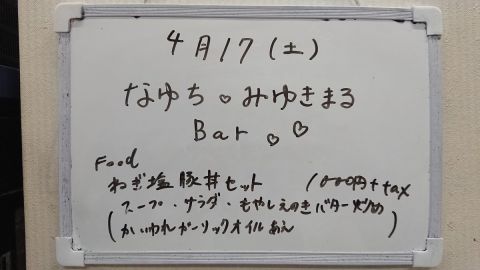 4月17(土)
なゆち♡みゆきまる
Bar ♡♡
Food
ねぎ塩豚丼セット 1000円+tax
(スープ・サラダ・もやしえのきバター炒め
かいわれガーリックオイルあえ)